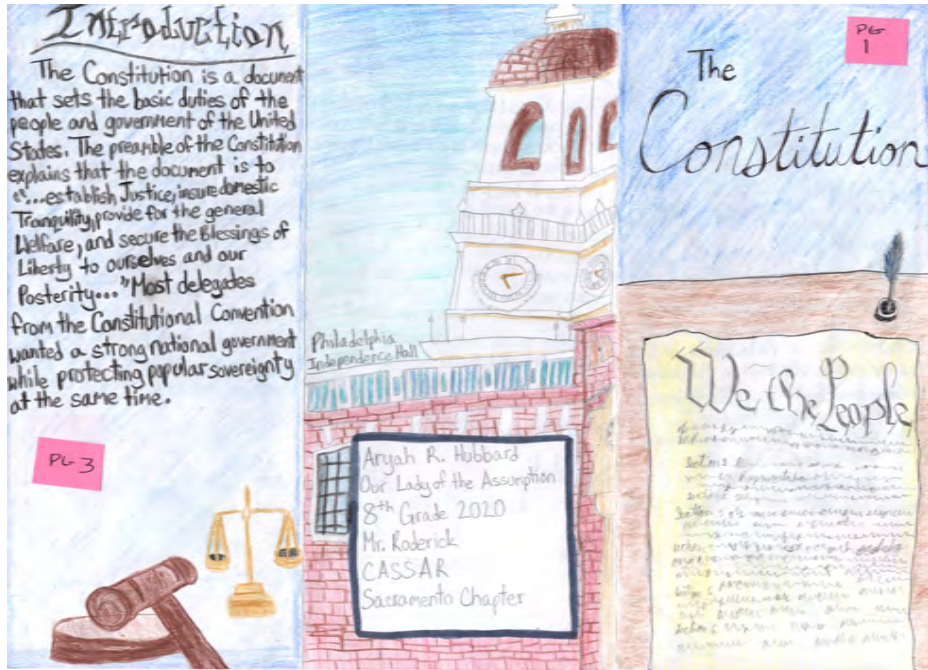 Introduction
The Constitution is a document
that sets the basic duties of the
people and government of the United
States. The preamble of the Constitution
explains that the document is to
"...establish Justice, insure domestic
Tranquility, provide for the general
Welfare, and secure the Blessings of
Liberty to ourselves and our
Posterity..." Most delegates
from the Constitutional Convention
wanted a strong national government
while protecting popular sovereignty
at the same time.
PG 3
Philadelphia
Independence Hall
Aryah R. Hubbard
Our Lady of the Assumption
8th Grade 2020
Mr. Roderick
CASSAR
Sacramento Chapter
PG
1
The
Constitution
We the People